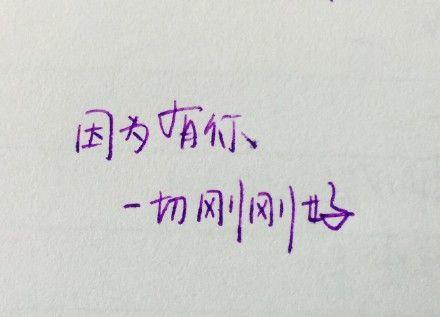 因为有你、
一切刚刚好